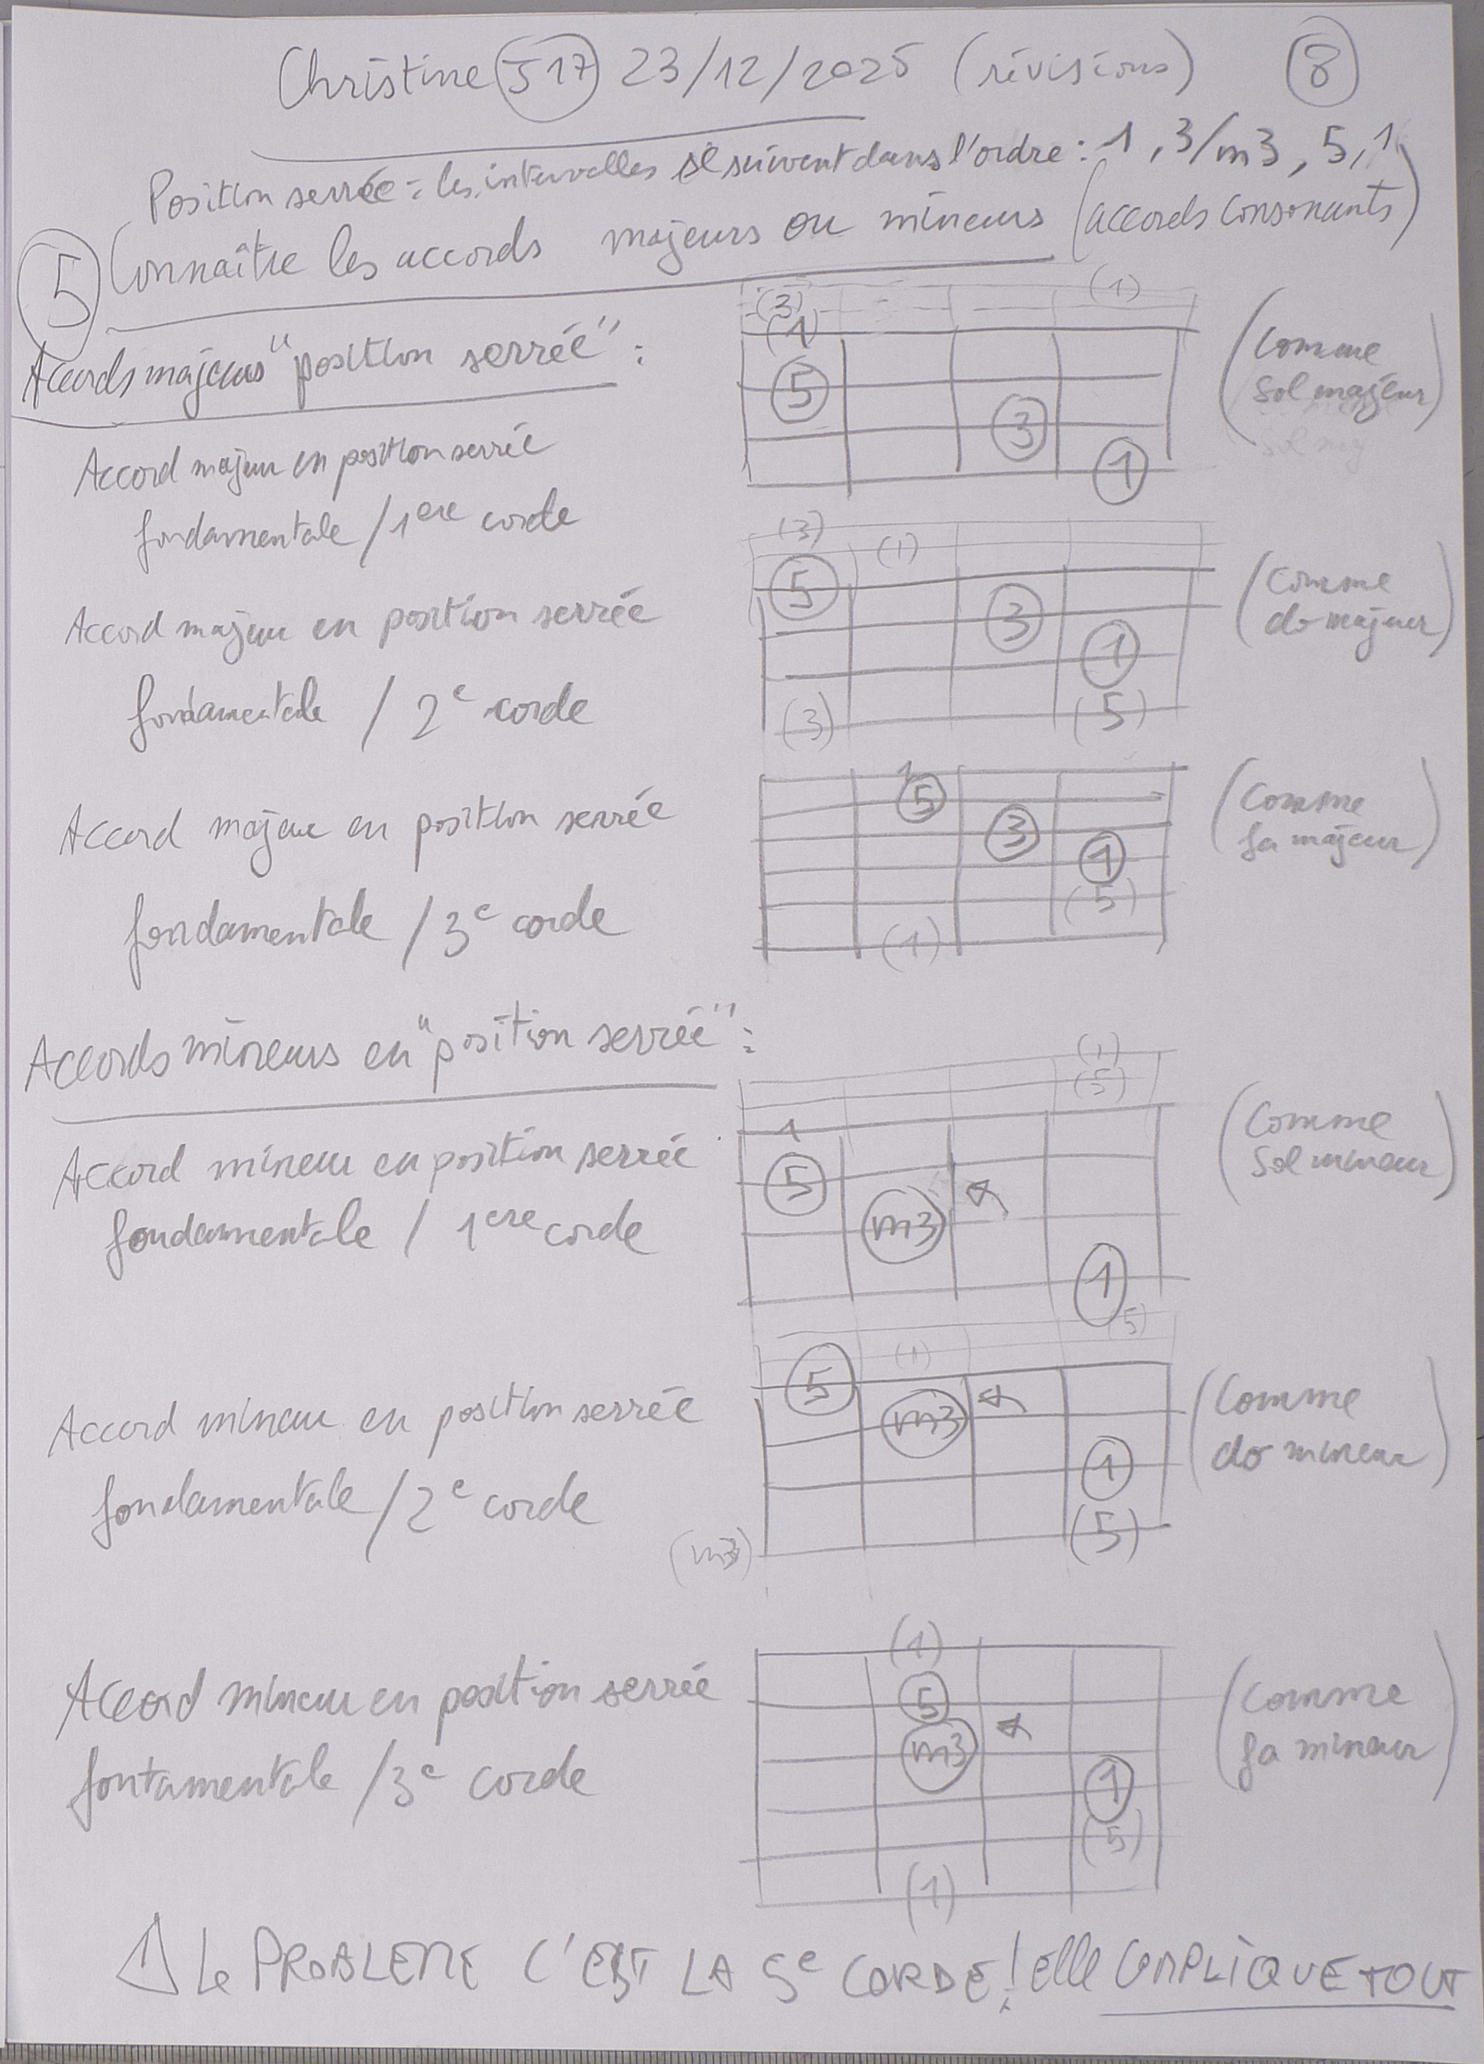 Christine J17 23/12/2025 (révisions) 8
Position serrée = les intervalles se suivent dans l'ordre : 1, 3/m3, 5, 1
5 Connaître les accords majeurs ou mineurs (accords consonants)
Accords majeurs "position serrée" :
(3) (1)
(1)
5
3
1
(Comme
Sol majeur)
Accord majeur en position serrée
fondamentale / 1ere corde
(3) (1)
5
3
1
(3) (5)
(Comme
do majeur)
Accord majeur en position serrée
fondamentale / 2e corde
1
5
3
1
(5)
(1)
(Comme
fa majeur)
Accord majeur en position serrée
fondamentale / 3e corde
Accords mineurs en "position serrée" :
(1)
(5)
1
5
m3
1
(Comme
Sol mineur)
Accord mineur en position serrée
fondamentale / 1ere corde
(5)
5 (1)
m3
1
(m3) (5)
(Comme
do mineur)
Accord mineur en position serrée
fondamentale / 2e corde
(1)
5
m3
1
(5)
(1)
(Comme
fa mineur)
Accord mineur en position serrée
fontamentale / 3e corde
! Le PROBLEME C'EST LA 5e CORDE ! elle COMPLIQUE TOUT